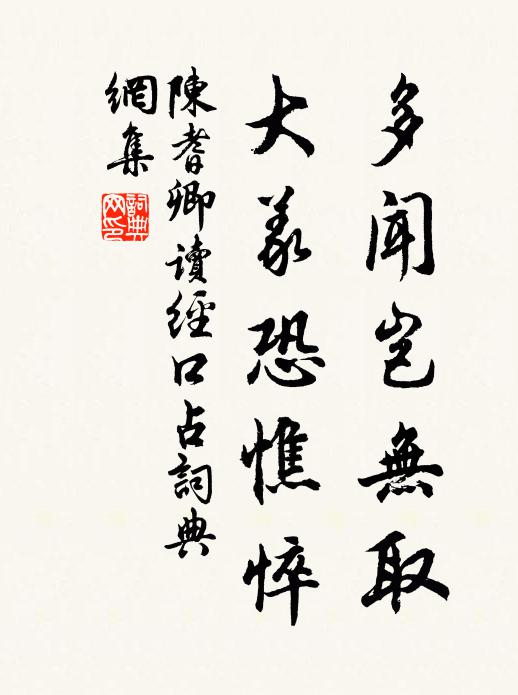 多聞豈無取
大義恐憔悴
陳耆卿讀經口占詞典
網集
詞典網印